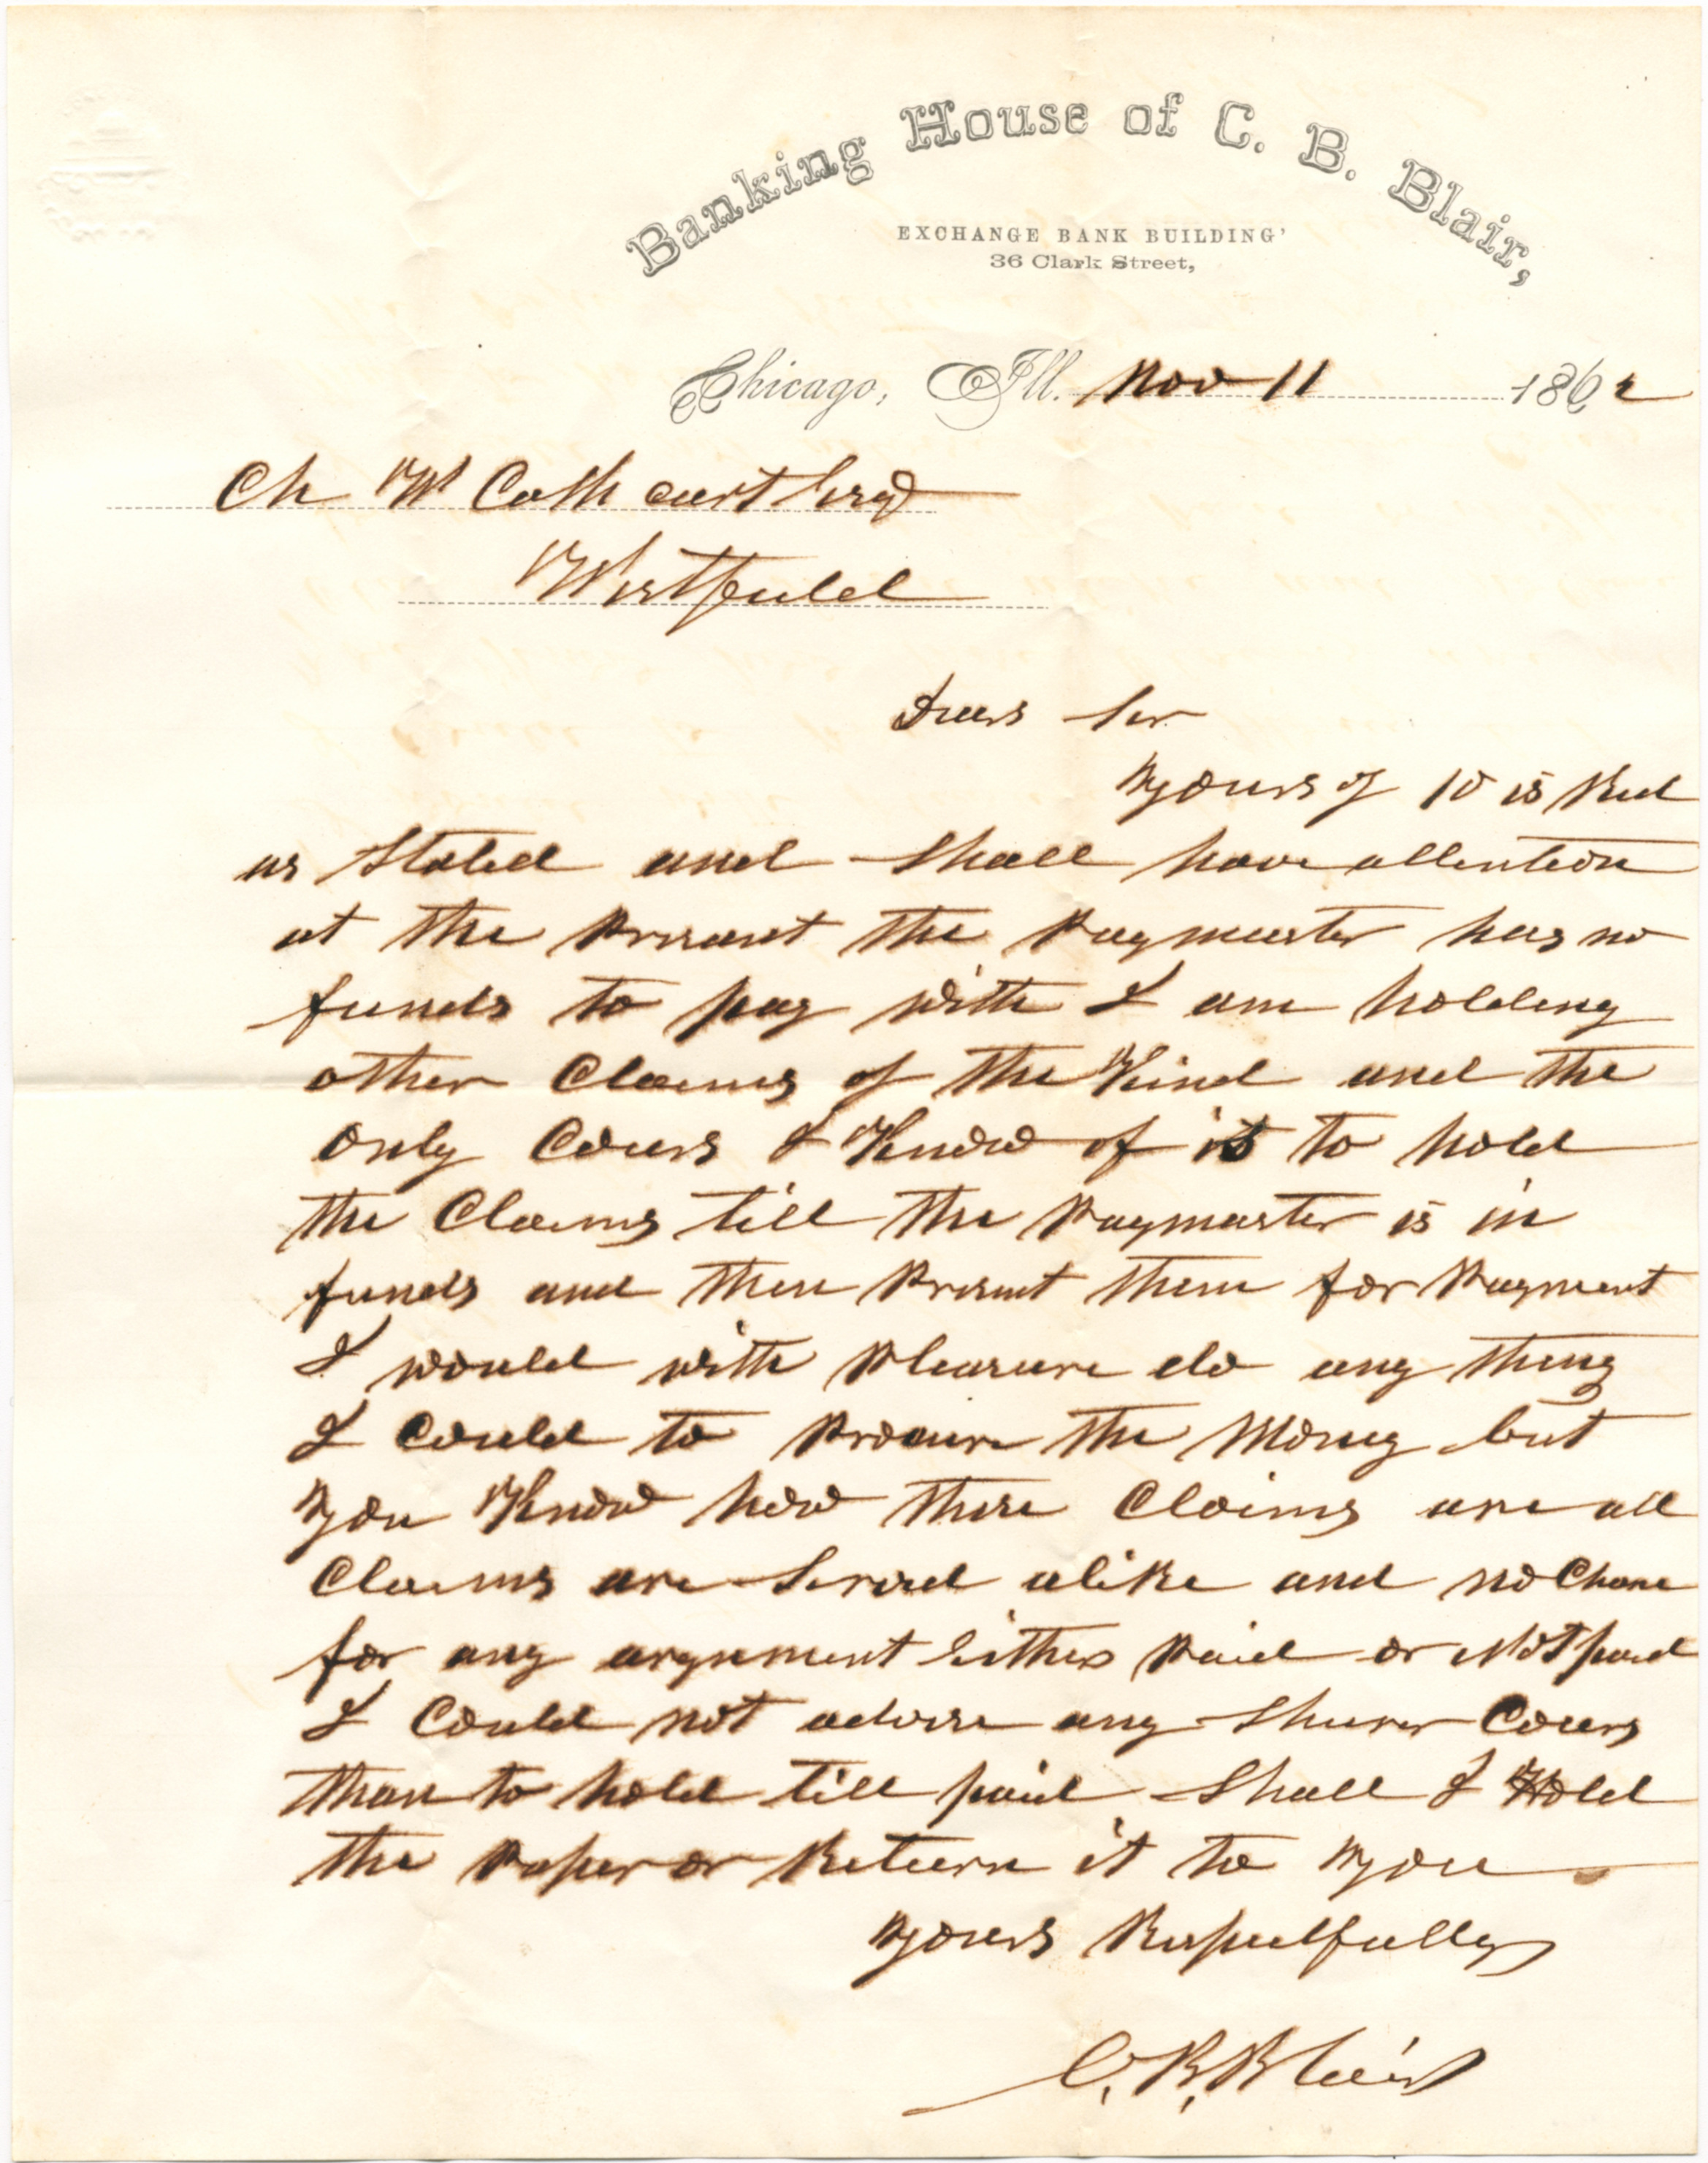 Banking House of C. B. Blair,
EXCHANGE BANK BUILDING'
36 Clark Street,
Chicago, Ill. Nov 11 1862
Ch W Cathcart Esq
Westfield
Dear Sir
Yours of 10 is Recd
as Stated and Shall have attention
at the Present the Paymaster has no
funds to pay with I am holding
other Claims of the Kind and the
only Cours I Know of is to hold
the Claims till the Paymaster is in
funds and then Present them for Payment
I would with Pleasure do any thing
I Could to Procure the Money but
you Know how these Claims are all
Claims are Servd alike and no Chanc
for any argument Either Paid or Not paid
I Could not advise any Shurer Cours
than to hold till paid Shall I Hold
the Paper or Return it to you
Yours Respectfully
C. B. Blair